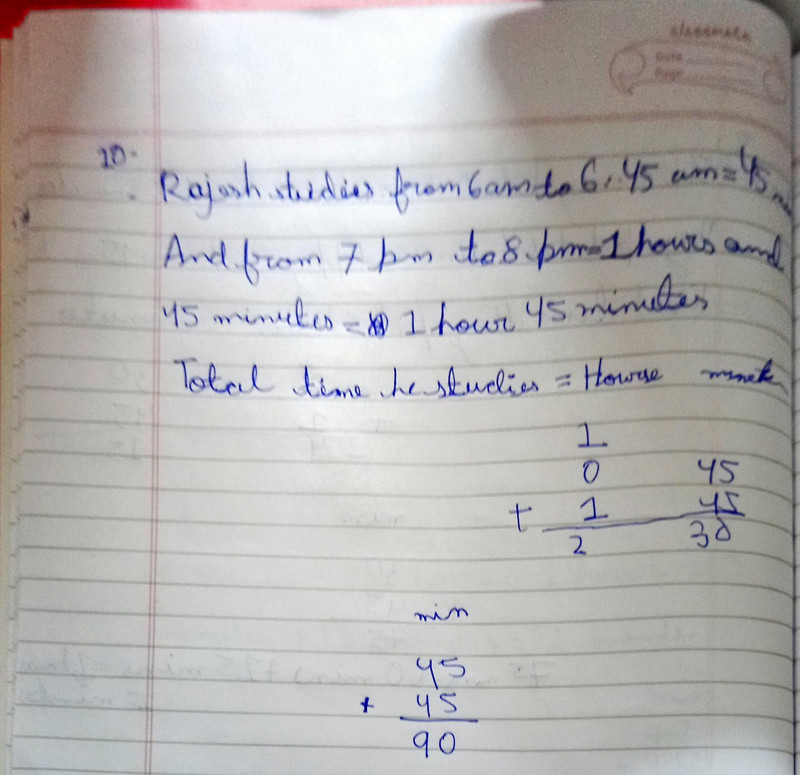 classmate
Date
Page
10.
Rajesh studies from 6 am to 6.45 am = 45
And from 7 pm to 8 pm = 1 hours and
45 minutes = 1 hour 45 minutes
Total time he studies = Hours
1
0 45
+ 1 45
2 30
min
45
+ 45
90